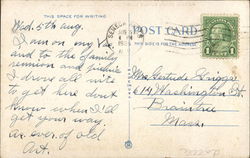 THIS SPACE FOR WRITING
POST CARD
Wed. 5th Aug.
I am on my
and to the family
reunion and picnic
I drove all nite
to get here don't
know when I'd
get your way.
As ever of old
Art.
Mrs. Gertrude
614 Washington St.
Braintree
Mass.